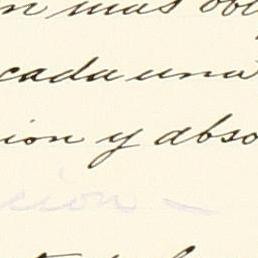 n mas obl
cada una
ion y abso
cion -